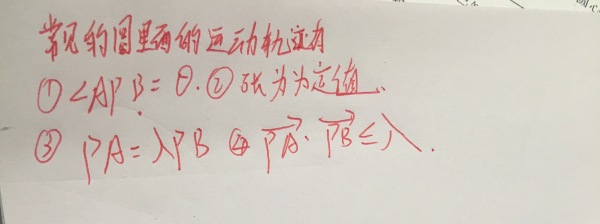 常见的圆里面的运动轨迹有
①∠APB=θ.②张为为定值.
③ PA=λPB ④ $\overrightarrow{PA}·\overrightarrow{PB}≤λ$.